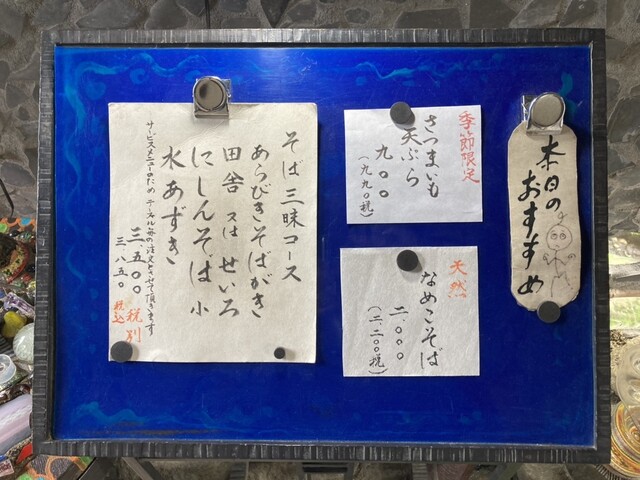 本日の
おすすめ
季節限定
さつまいも
天ぷら
九〇〇
(九九〇税)
天然
なめこそば
二、〇〇〇
(二、二〇〇税)
そば三昧コース
あらびきそばがき
田舎又はせいろ
にしんそば 小
水あずき
サービスメニューのため テーブル毎の注文とさせて頂きます
三、五〇〇 税別
三、八五〇 税込